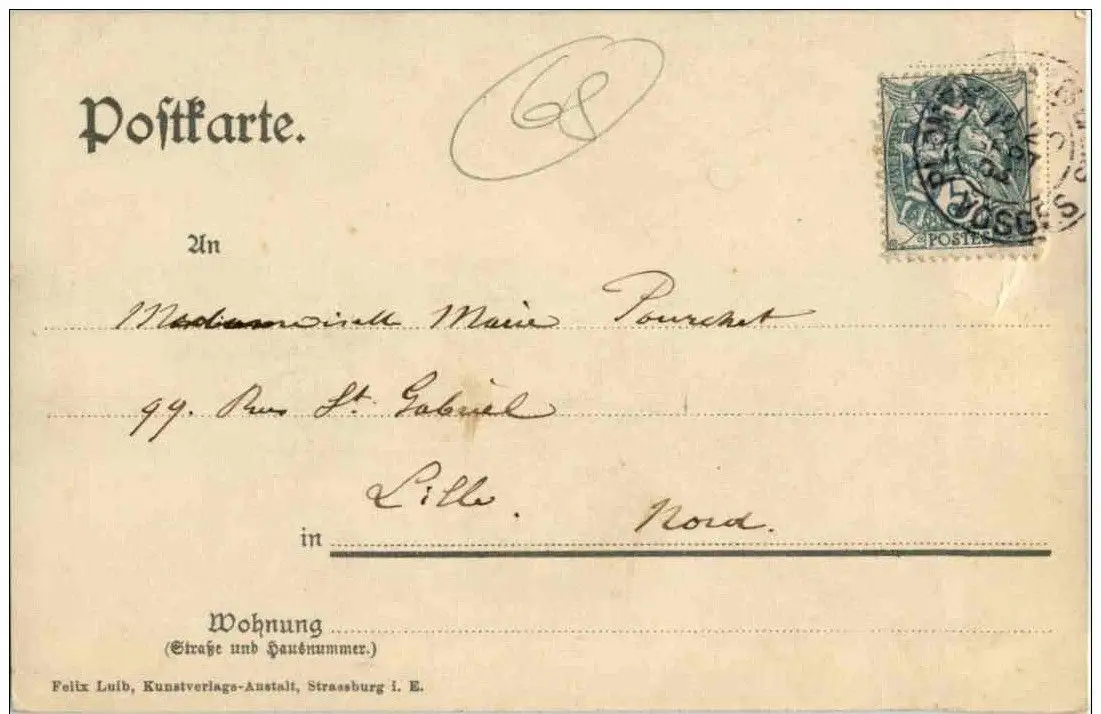 68
Postkarte.
5
POSTES
VOSGES
An
Mademoiselle Marie Pourchet
99. Rue St. Gabriel
Lille. Nord.
in
Wohnung
(Straße und Hausnummer.)
Felix Luib, Kunstverlags-Anstalt, Strassburg i. E.